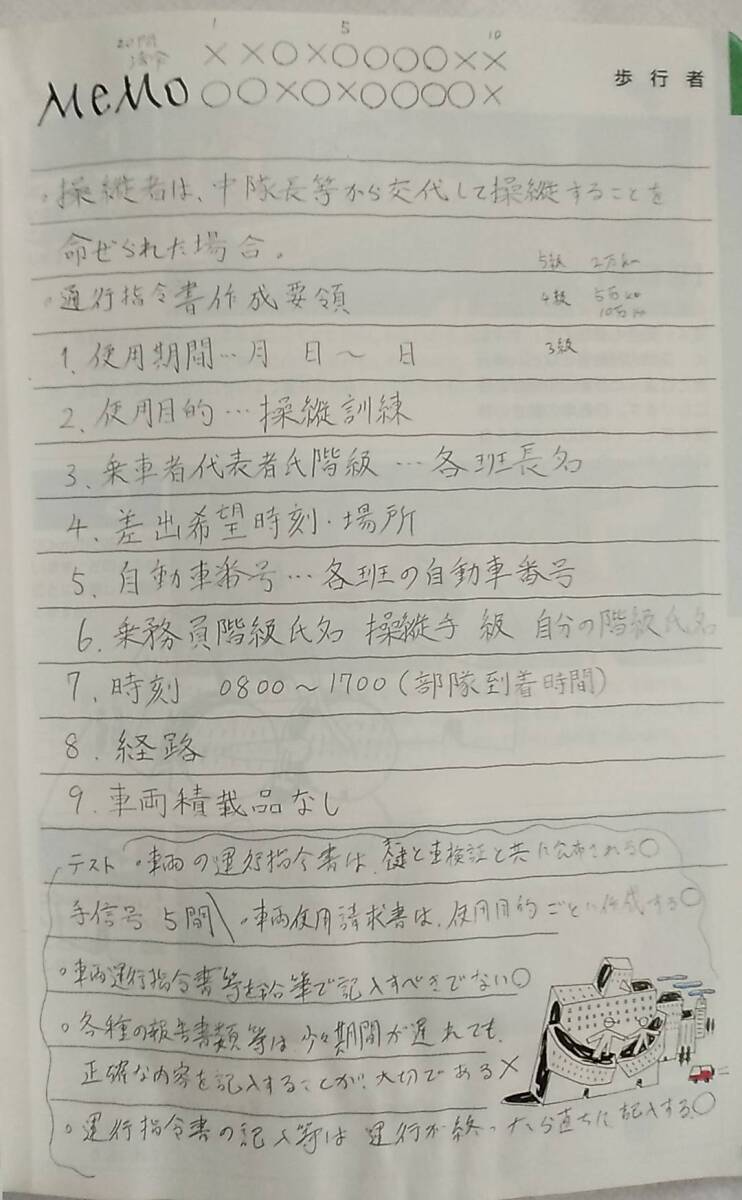 1 5 10
20問
××○×○○○○××
歩行者
MEMO ○○×○×○○○○×
。操縦者は、中隊長等から交代して操縦することを
命ぜられた場合。
5級 2万km
。通行指令書作成要領
4級 5万km
10万km
1. 使用期間…月 日〜 日
3級
2. 使用目的…操縦訓練
3. 乗車者代表者氏階級…各班長名
4. 差出希望時刻・場所
5. 自動車番号…各班の自動車番号
6. 乗務員階級氏名 操縦手 級 自分の階級氏名
7. 時刻 0800〜1700(部隊到着時間)
8. 経路
9. 車両積載品なし
テスト 。車両の運行指令書は、鍵と車検証と共に公布される○
手信号 5問 。車両使用請求書は、使用目的ごとに作成する○
。車両運行指令書等を鉛筆で記入すべきでない○
。各種の報告書類等は少々期間が遅れても、
正確な内容を記入することが、大切である×
。運行指令書の記入等は運行が終ったら直ちに記入する。○